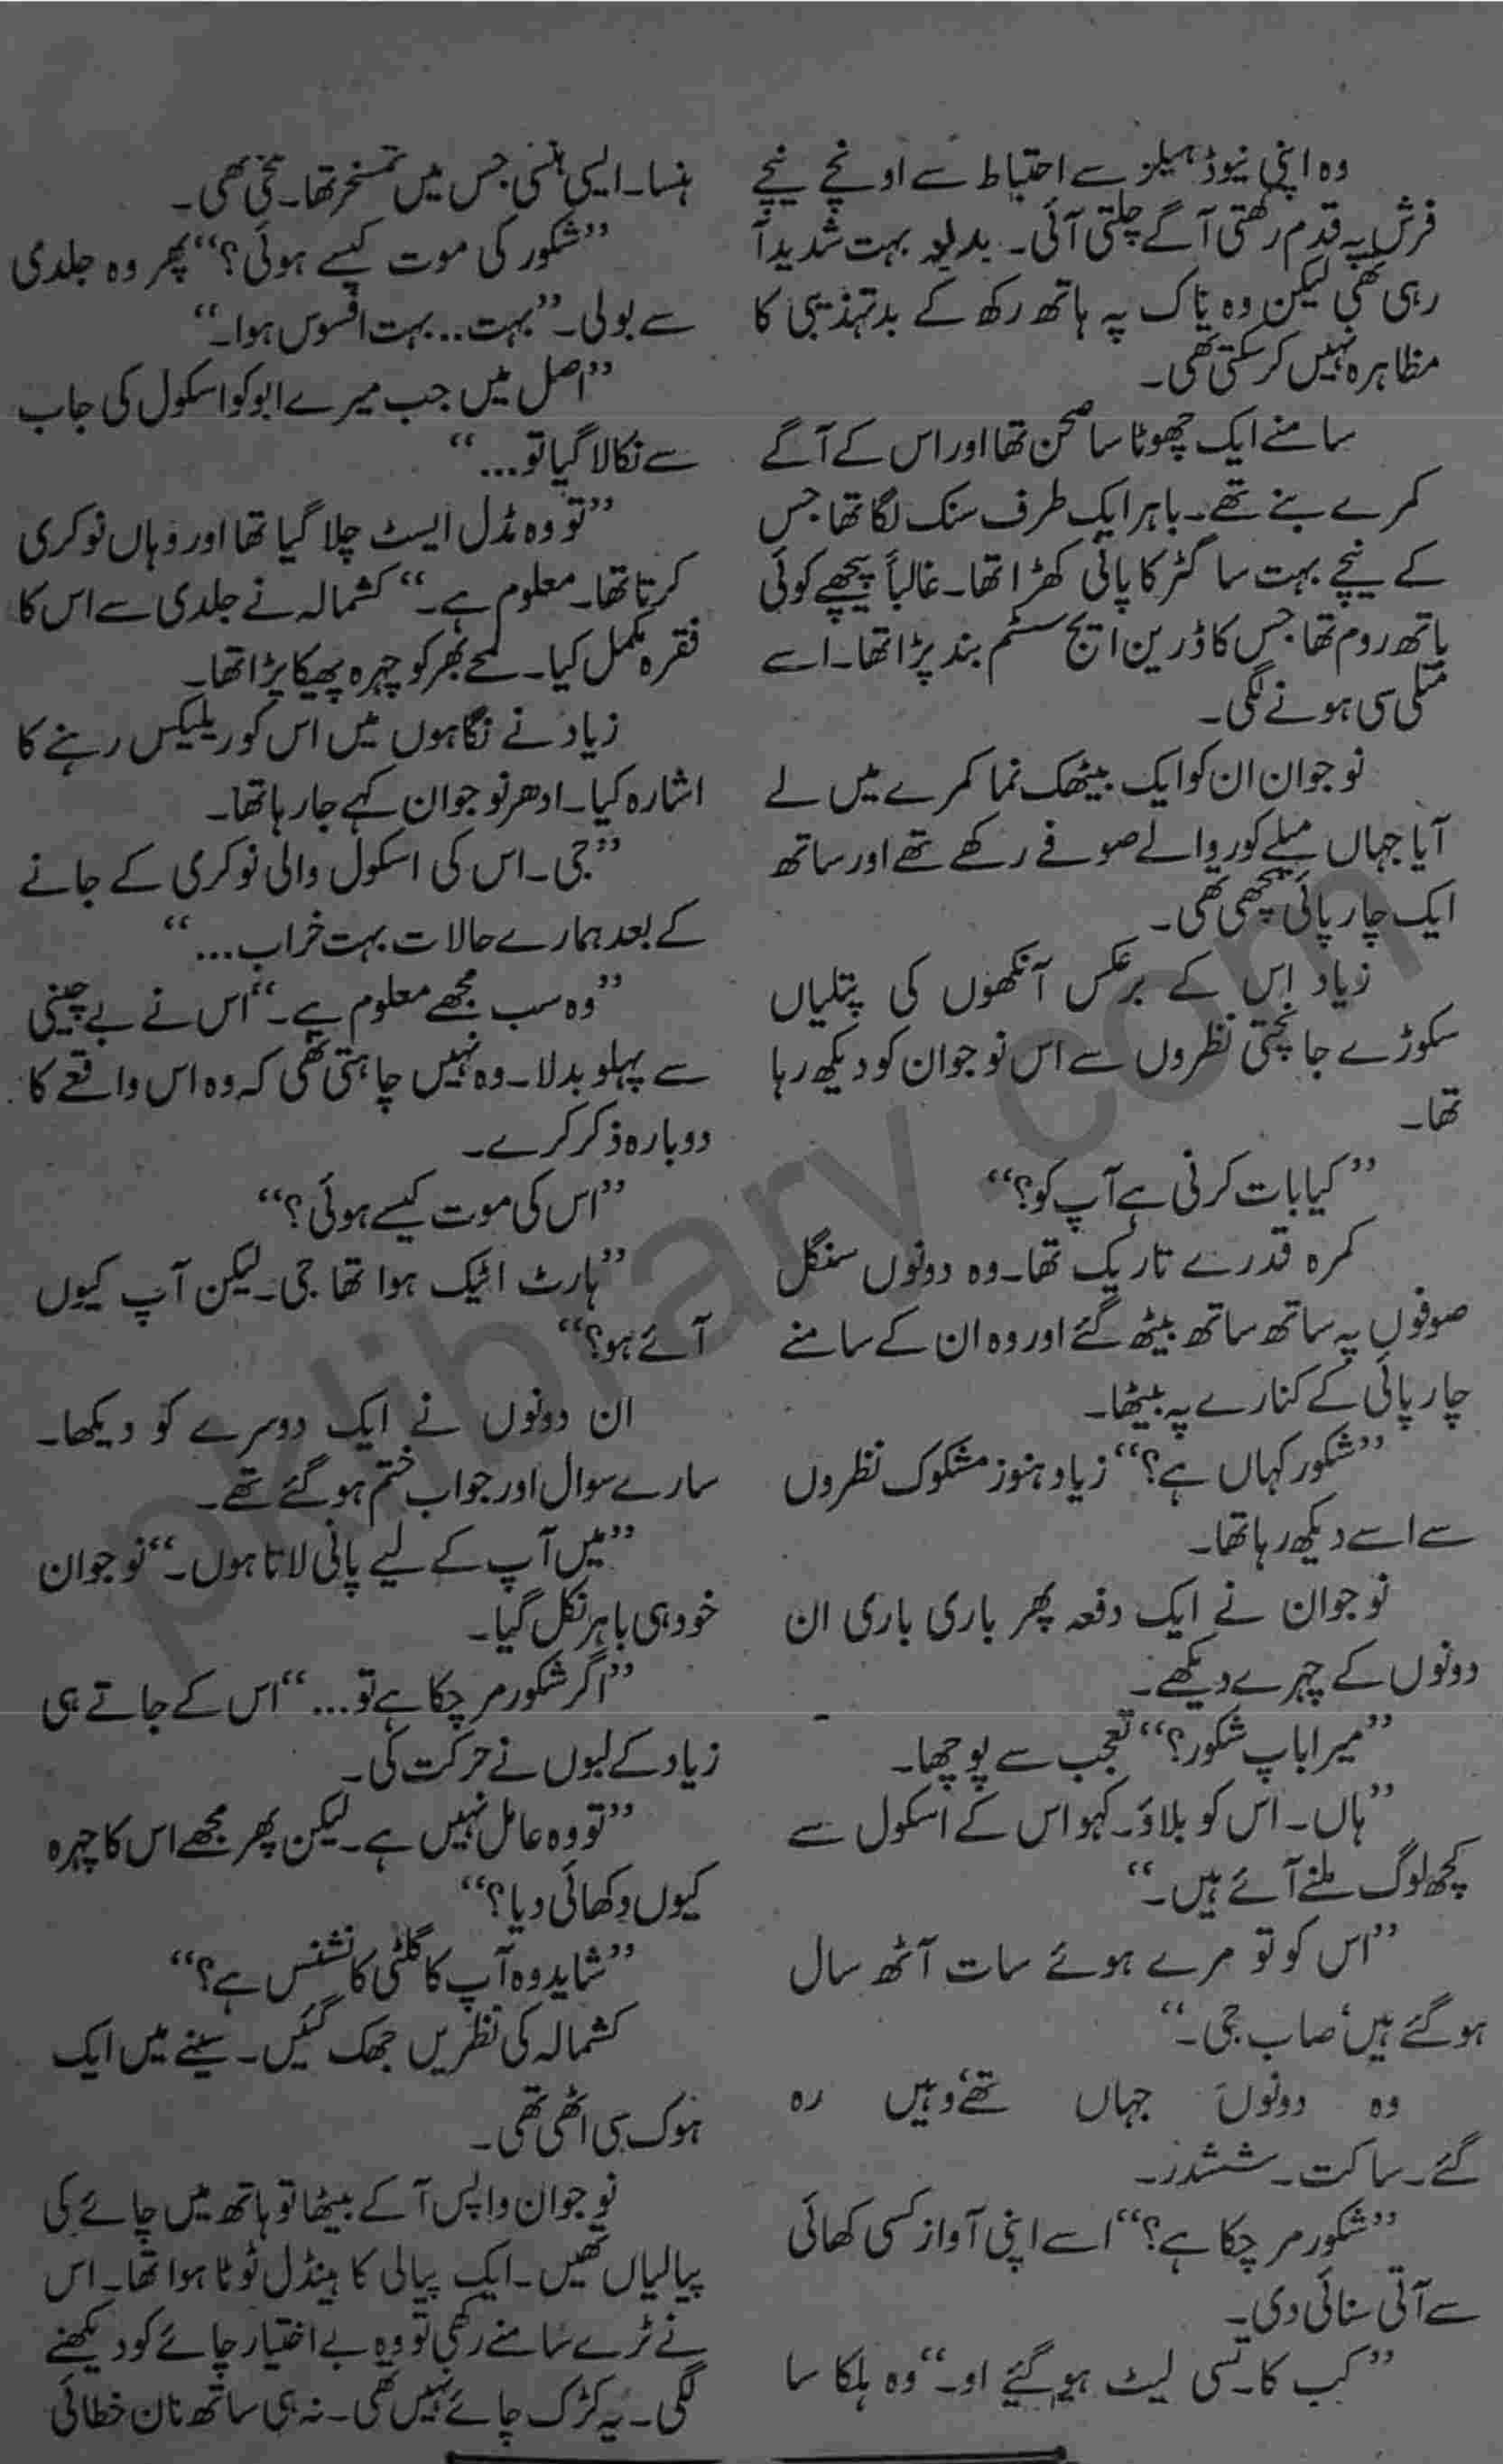 وہ اپنی نیوڈ ہیلز سے احتیاط سے اونچے نیچے
فرش پہ قدم رکھتی آگے چلتی آئی۔ بدبو بہت شدید آ
رہی تھی لیکن وہ ناک پہ ہاتھ رکھ کے بدتہذیبی کا
مظاہرہ نہیں کر سکتی تھی۔
سامنے ایک چھوٹا سا صحن تھا اور اس کے آگے
کمرے بنے تھے۔ باہر ایک طرف سنک لگا تھا جس
کے نیچے بہت سا گٹر کا پانی کھڑا تھا۔ غالباً پیچھے کوئی
باتھ روم تھا جس کا ڈرین ایج سسٹم بند پڑا تھا۔ اسے
متلی سی ہونے لگی۔
نوجوان ان کو ایک بیٹھک نما کمرے میں لے
آیا جہاں میلے کور والے صوفے رکھے تھے اور ساتھ
ایک چارپائی بچھی تھی۔
زیاد اس کے برعکس آنکھوں کی پتلیاں
سکوڑے جانچتی نظروں سے اس نوجوان کو دیکھ رہا
تھا۔
”کیا بات کرنی ہے آپ کو؟“
کمرہ قدرے تاریک تھا۔ وہ دونوں سنگل
صوفوں پہ ساتھ ساتھ بیٹھ گئے اور وہ ان کے سامنے
چارپائی کے کنارے پہ بیٹھا۔
”شکور کہاں ہے؟“ زیاد ہنوز مشکوک نظروں
سے اسے دیکھ رہا تھا۔
نوجوان نے ایک دفعہ پھر باری باری ان
دونوں کے چہرے دیکھے۔
”میرا باپ شکور؟“ تعجب سے پوچھا۔
”ہاں۔ اس کو بلاؤ۔ کہو اس کے اسکول سے
کچھ لوگ ملنے آئے ہیں۔“
”اس کو تو مرے ہوئے سات آٹھ سال
ہو گئے ہیں‘ صاب جی۔“
وہ دونوں جہاں تھے‘ وہیں رہ
گئے۔ ساکت۔ ششدر۔
”شکور مر چکا ہے؟“ اسے اپنی آواز کسی کھائی
سے آتی سنائی دی۔
”کب کا۔ تسی لیٹ ہو گئے او۔“ وہ ہلکا سا
ہنسا۔ ایسی ہنسی جس میں تمسخر تھا۔ تلخی تھی۔
”شکور کی موت کیسے ہوئی؟“ پھر وہ جلدی
سے بولی۔ ”بہت.. بہت افسوس ہوا۔“
”اصل میں جب میرے ابو کو اسکول کی جاب
سے نکالا گیا تو...“
”تو وہ مڈل ایسٹ چلا گیا تھا اور وہاں نوکری
کرتا تھا۔ معلوم ہے۔“ کشمالہ نے جلدی سے اس کا
فقرہ مکمل کیا۔ لمحے بھر کو چہرہ پھیکا پڑا تھا۔
زیاد نے نگاہوں میں اس کو ریلیکس رہنے کا
اشارہ کیا۔ ادھر نوجوان کہے جا رہا تھا۔
”جی۔ اس کی اسکول والی نوکری کے جانے
کے بعد ہمارے حالات بہت خراب...“
”وہ سب مجھے معلوم ہے۔“ اس نے بے چینی
سے پہلو بدلا۔ وہ نہیں چاہتی تھی کہ وہ اس واقعے کا
دوبارہ ذکر کرے۔
”اس کی موت کیسے ہوئی؟“
”ہارٹ اٹیک ہوا تھا جی۔ لیکن آپ کیوں
آئے ہو؟“
ان دونوں نے ایک دوسرے کو دیکھا۔
سارے سوال اور جواب ختم ہو گئے تھے۔
”میں آپ کے لیے پانی لاتا ہوں۔“ نوجوان
خود ہی باہر نکل گیا۔
”اگر شکور مر چکا ہے تو...“ اس کے جاتے ہی
زیاد کے لبوں نے حرکت کی۔
”تو وہ عامل نہیں ہے۔ لیکن پھر مجھے اس کا چہرہ
کیوں دکھائی دیا؟“
”شاید وہ آپ کا گلٹی کانشنس ہے؟“
کشمالہ کی نظریں جھک گئیں۔ سینے میں ایک
ہوک سی اٹھی تھی۔
نوجوان واپس آ کے بیٹھا تو ہاتھ میں چائے کی
پیالیاں تھیں۔ ایک پیالی کا ہینڈل ٹوٹا ہوا تھا۔ اس
نے ٹرے سامنے رکھی تو وہ بے اختیار چائے کو دیکھنے
لگی۔ یہ کڑک چائے نہیں تھی۔ نہ ہی ساتھ نان خطائی
pklibrary.com